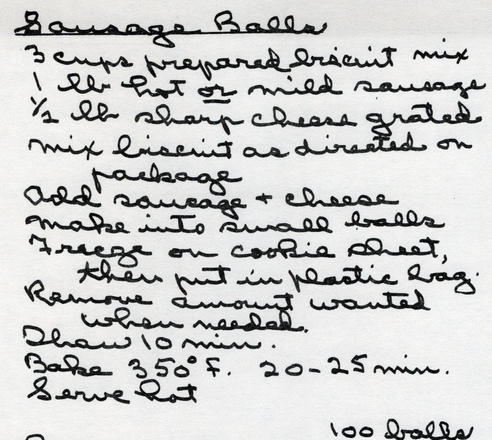 Sausage Balls
3 cups prepared biscuit mix
1 lb hot or mild sausage
1/2 lb sharp cheese grated
mix biscuit as directed on
package
add sausage + cheese
make into small balls
Freeze on cookie sheet,
then put in plastic bag.
Remove amount wanted
when needed.
Thaw 10 min.
Bake 350° F. 20-25 min.
Serve hot
100 balls